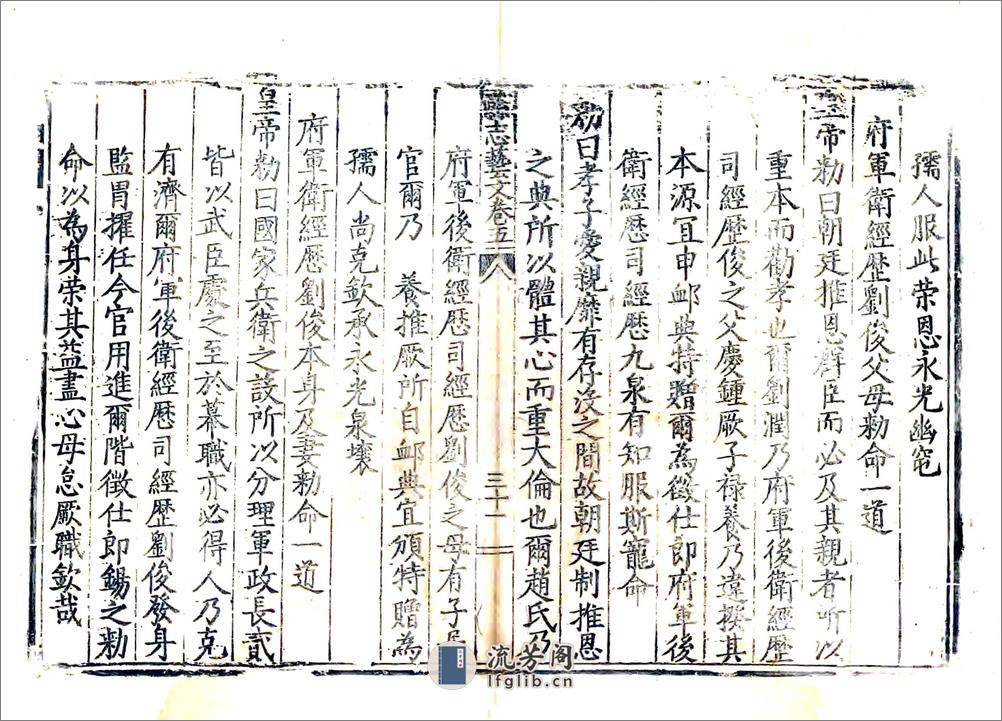 孺人服此荣恩永光幽窀
府軍衛經歷劉俊父母勑命一道
皇帝勑曰朝廷推恩羣臣而必及其親者所以
重本而勸孝也爾劉潤乃府軍後衛經歷
司經歷俊之父慶鍾厥子禄養乃違揆其
本源冝申卹典特贈爾為徵仕郎府軍後
衛經歷司經歷九泉有知服斯寵命
勑曰孝子愛親靡有存沒之間故朝廷制推恩
之典所以體其心而重大倫也爾趙氏乃
府軍後衛經歷司經歷劉俊之母有子
官爾乃 養推厥所自卹典宜頒特贈為
孺人尚克歆承永光泉壤
府軍衛經歷劉俊本身及妻勑命一道
皇帝勑曰國家兵衛之設所以分理軍政長貳
皆以武臣處之至於幕職亦必得人乃克
有濟爾府軍後衛經歷司經歷劉俊發身
監胄擢任今官用進爾階徵仕郎錫之勑
命以為身荣其益盡心母怠厥職欽哉
縣志藝文卷五
八
三十一
流芳阁
lfglib.cn